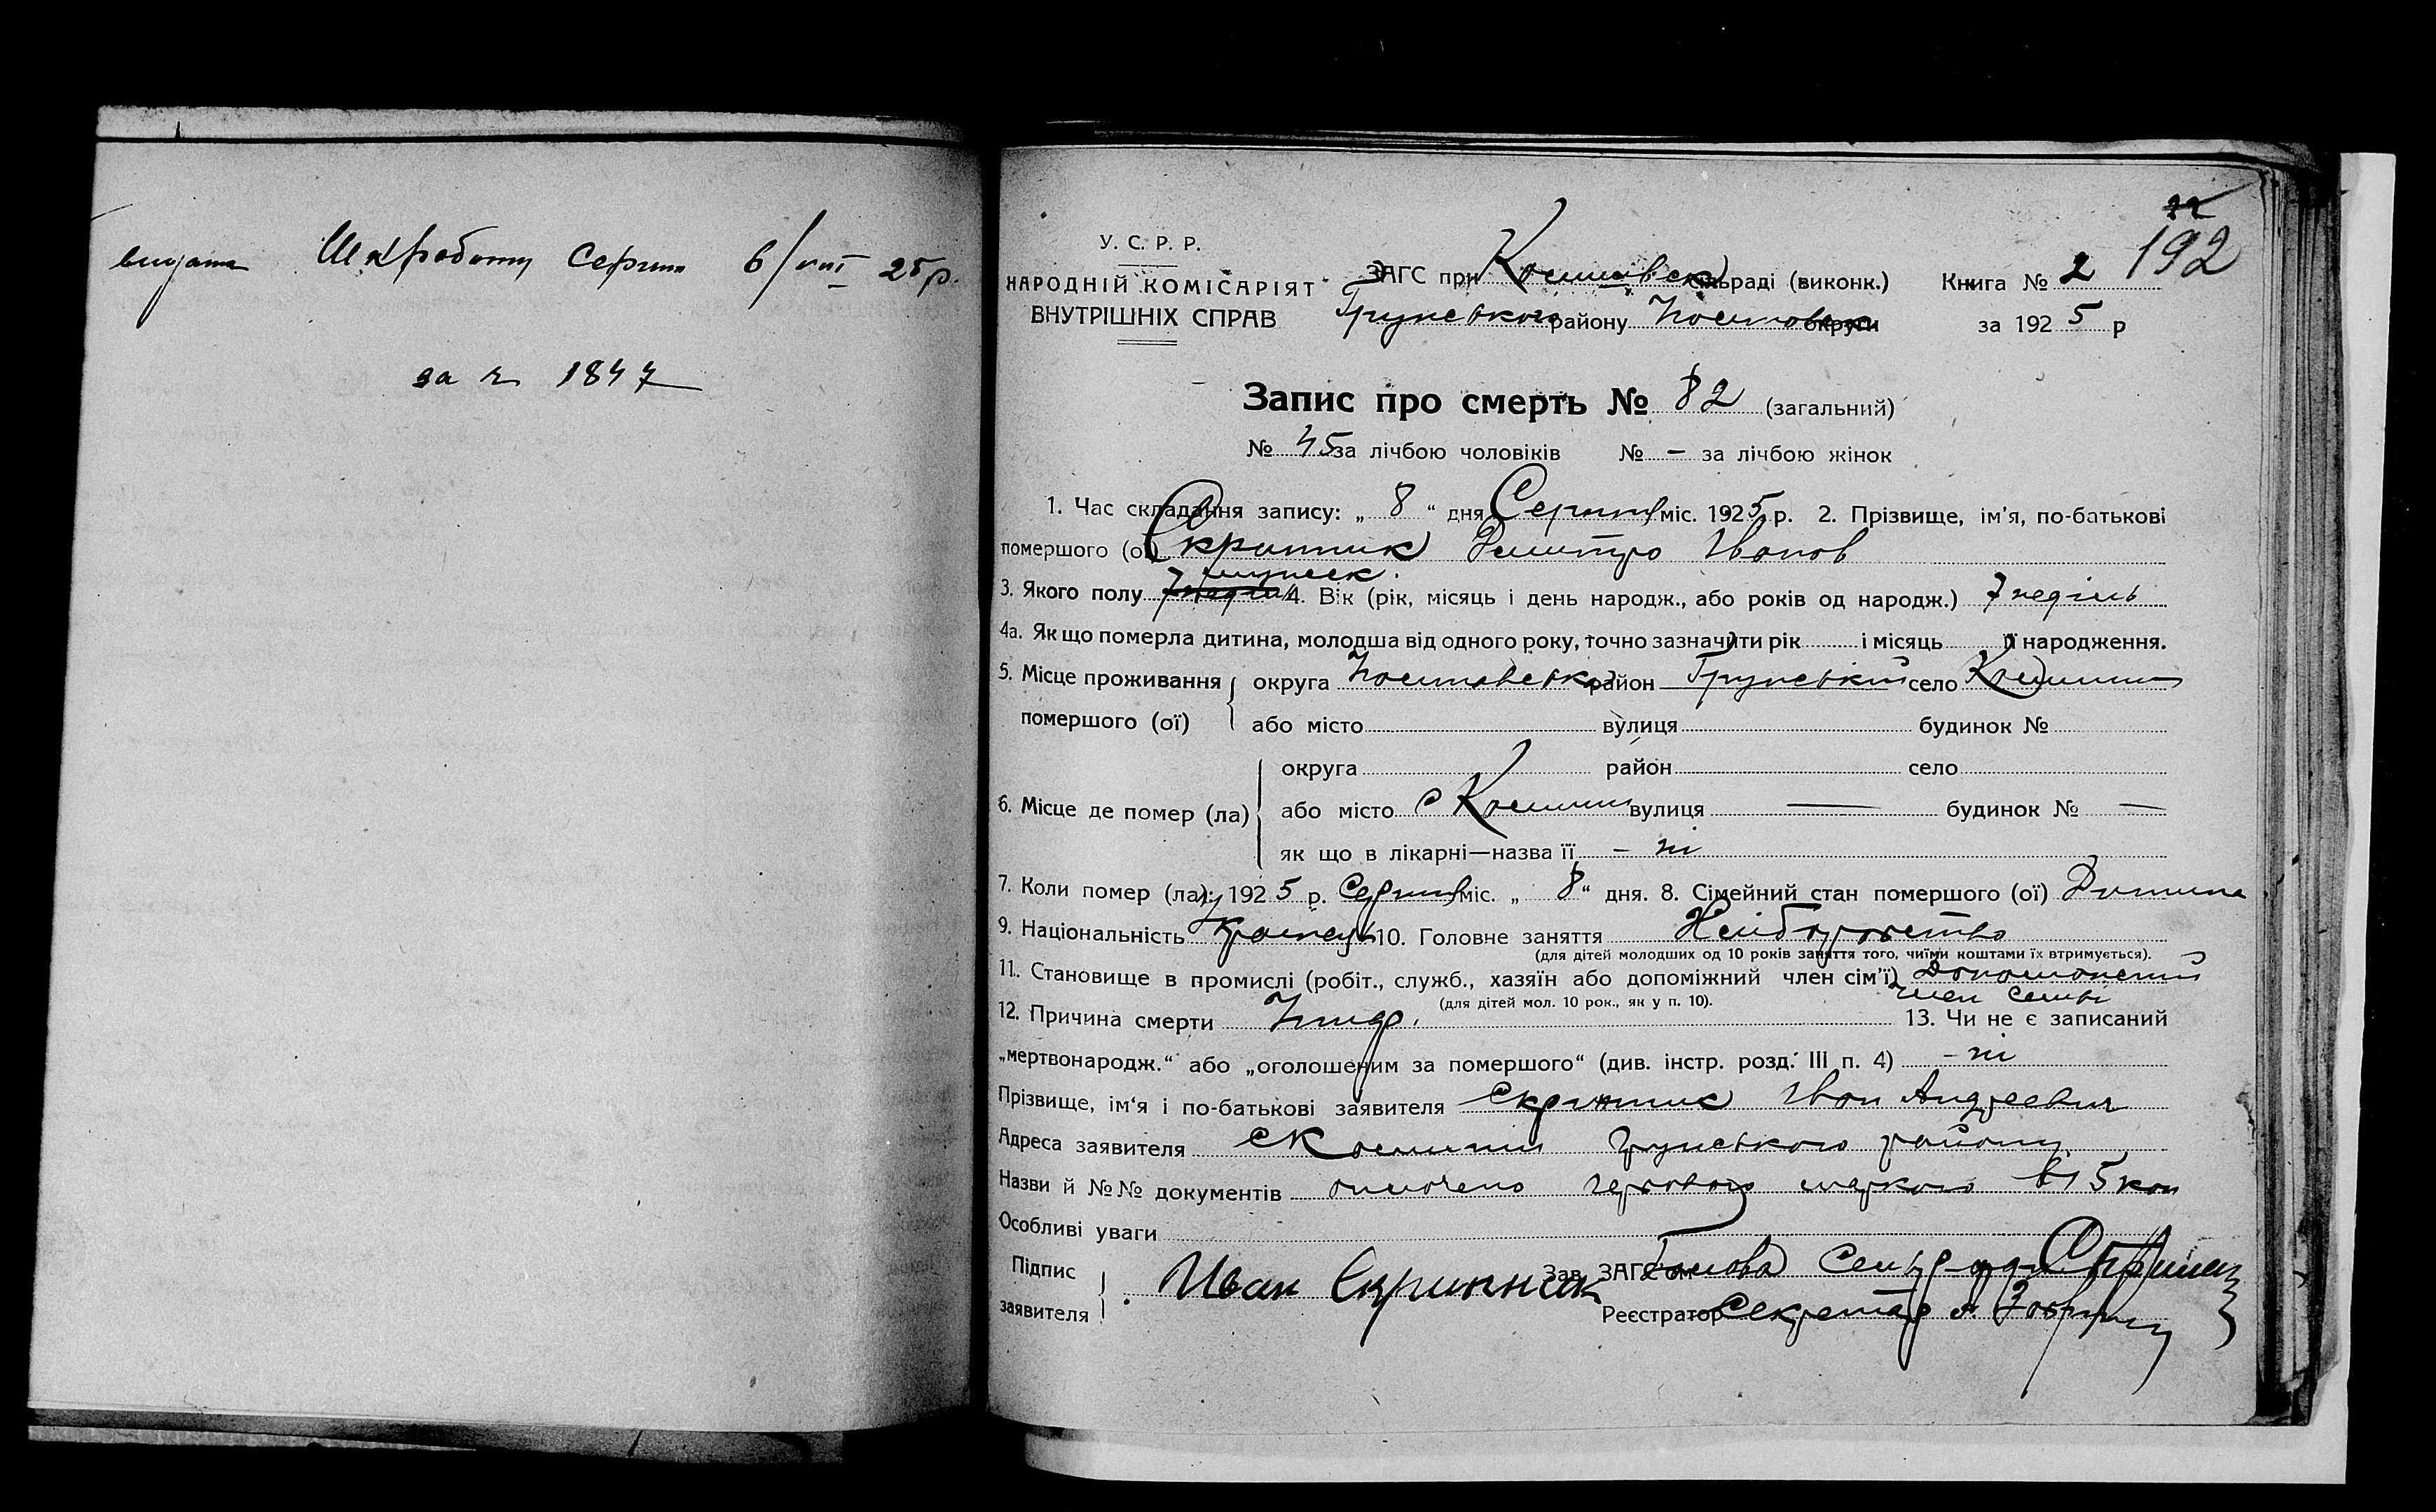 видана Шкработу Серпня 6/VIII 25 р.
за № 1847
22
192
У. С. Р. Р.
НАРОДНІЙ КОМІСАРІЯТ
ВНУТРІШНІХ СПРАВ
ЗАГС при сільраді (виконк.) Книга № 2
Грунського району Полтавськ округи за 1925 р
Запис про смерть № 82 (загальний)
№ 45 за лічбою чоловіків № — за лічбою жінок
1. Час складання запису: „ 8 “ дня Серпня міс. 1925 р. 2. Прізвище, ім'я, по-батькові
помершого (ої) Скрипник Дмитро Іванов
3. Якого полу мужеск. 4. Вік (рік, місяць і день народж., або років од народж.) 7 неділь
4а. Як що померла дитина, молодша від одного року, точно зазначити рік і місяць її народження.
5. Місце проживання округа Полтавська район Грунський село
помершого (ої) або місто вулиця будинок №
округа район село
6. Місце де помер (ла) або місто с вулиця — будинок № —
як що в лікарні—назва її – ні
7. Коли помер (ла): у 1925 р. Серпня міс. „ 8 “ дня. 8. Сімейний стан помершого (ої) Дитина
9. Національність Українець 10. Головне заняття Хліборобство
(для дітей молодших од 10 років заняття того, чиїми коштами їх втримується).
11. Становище в промислі (робіт., служб., хазяїн або допоміжний член сім'ї) Допоможний
член семьі
(для дітей мол. 10 рок., як у п. 10).
12. Причина смерти 13. Чи не є записаний
„мертвонародж.“ або „оголошеним за помершого“ (див. інстр. розд. III п. 4) – ні
Прізвище, ім'я і по-батькові заявителя Скрипник Іван Андреевич
Адреса заявителя с Грунського району
Назви й №№ документів оплочено гербового маркою в 15 коп
Особливі уваги
Підпис
заявителя Иван Скрипник
Зав. ЗАГС'ом Голова Сельради
Реєстратор Секретар